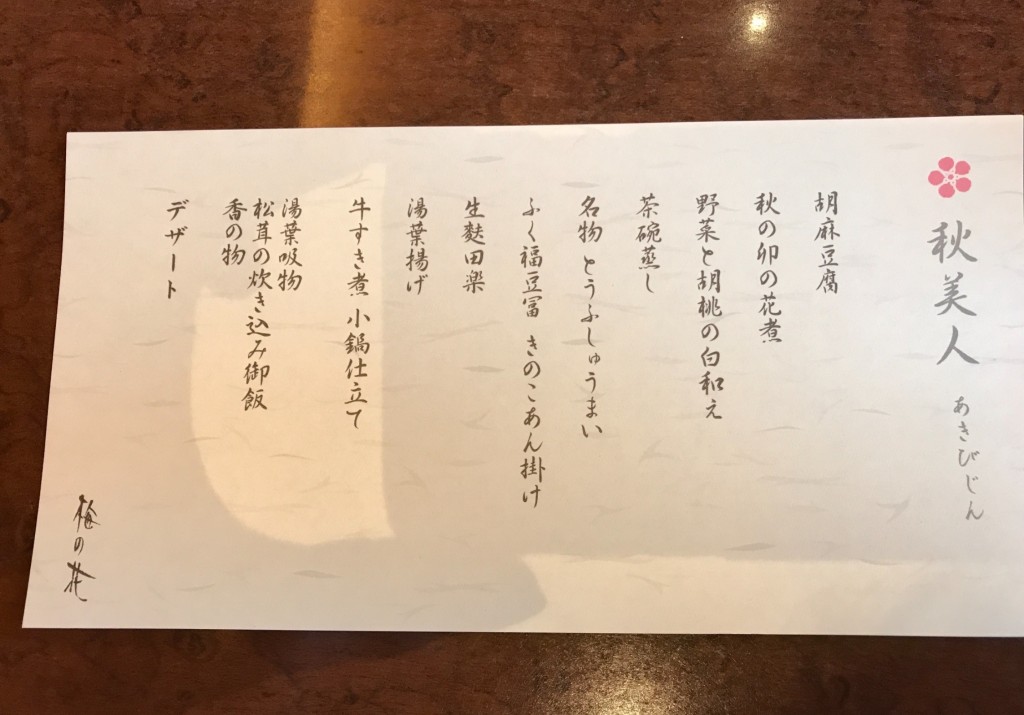 秋美人 あきびじん
胡麻豆腐
秋の卯の花煮
野菜と胡桃の白和え
茶碗蒸し
名物 とうふしゅうまい
ふく福豆冨 きのこあん掛け
生麩田楽
湯葉揚げ
牛すき煮 小鍋仕立て
湯葉吸物
松茸の炊き込み御飯
香の物
デザート
梅の花